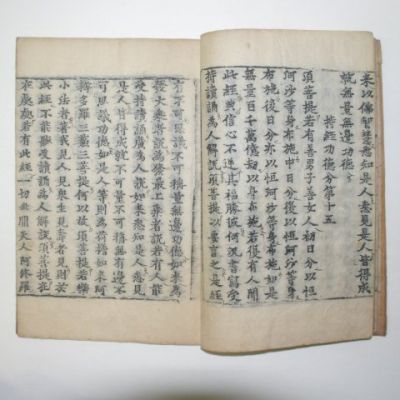 来以佛智慧悉知是人悉見是人皆得成
就無量無邊功德
持經功德分第十五
須菩提若有善男子善女人初日分以恒
河沙等身布施中日分復以恒河沙等身
布施後日分亦以恒河沙等身布施如是
無量百千萬億劫以身布施若復有人聞
此經典信心不逆其福勝彼何況書寫受
持讀誦為人解說須菩提以要言之是經
有不可思議不可稱量無邊功德如来為
發大乘者說為發最上乘者說若有人能
受持讀誦廣為人說如来悉知是人悉見
是人皆得成就不可量不可稱無有邊不
可思議功德如是人等則為荷擔如来阿
耨多羅三藐三菩提何以故須菩提若樂
小法者著我見人見衆生見壽者見則於
此經不能聽受讀誦為人解說須菩提在
在處處若有此經一切世間天人阿修羅